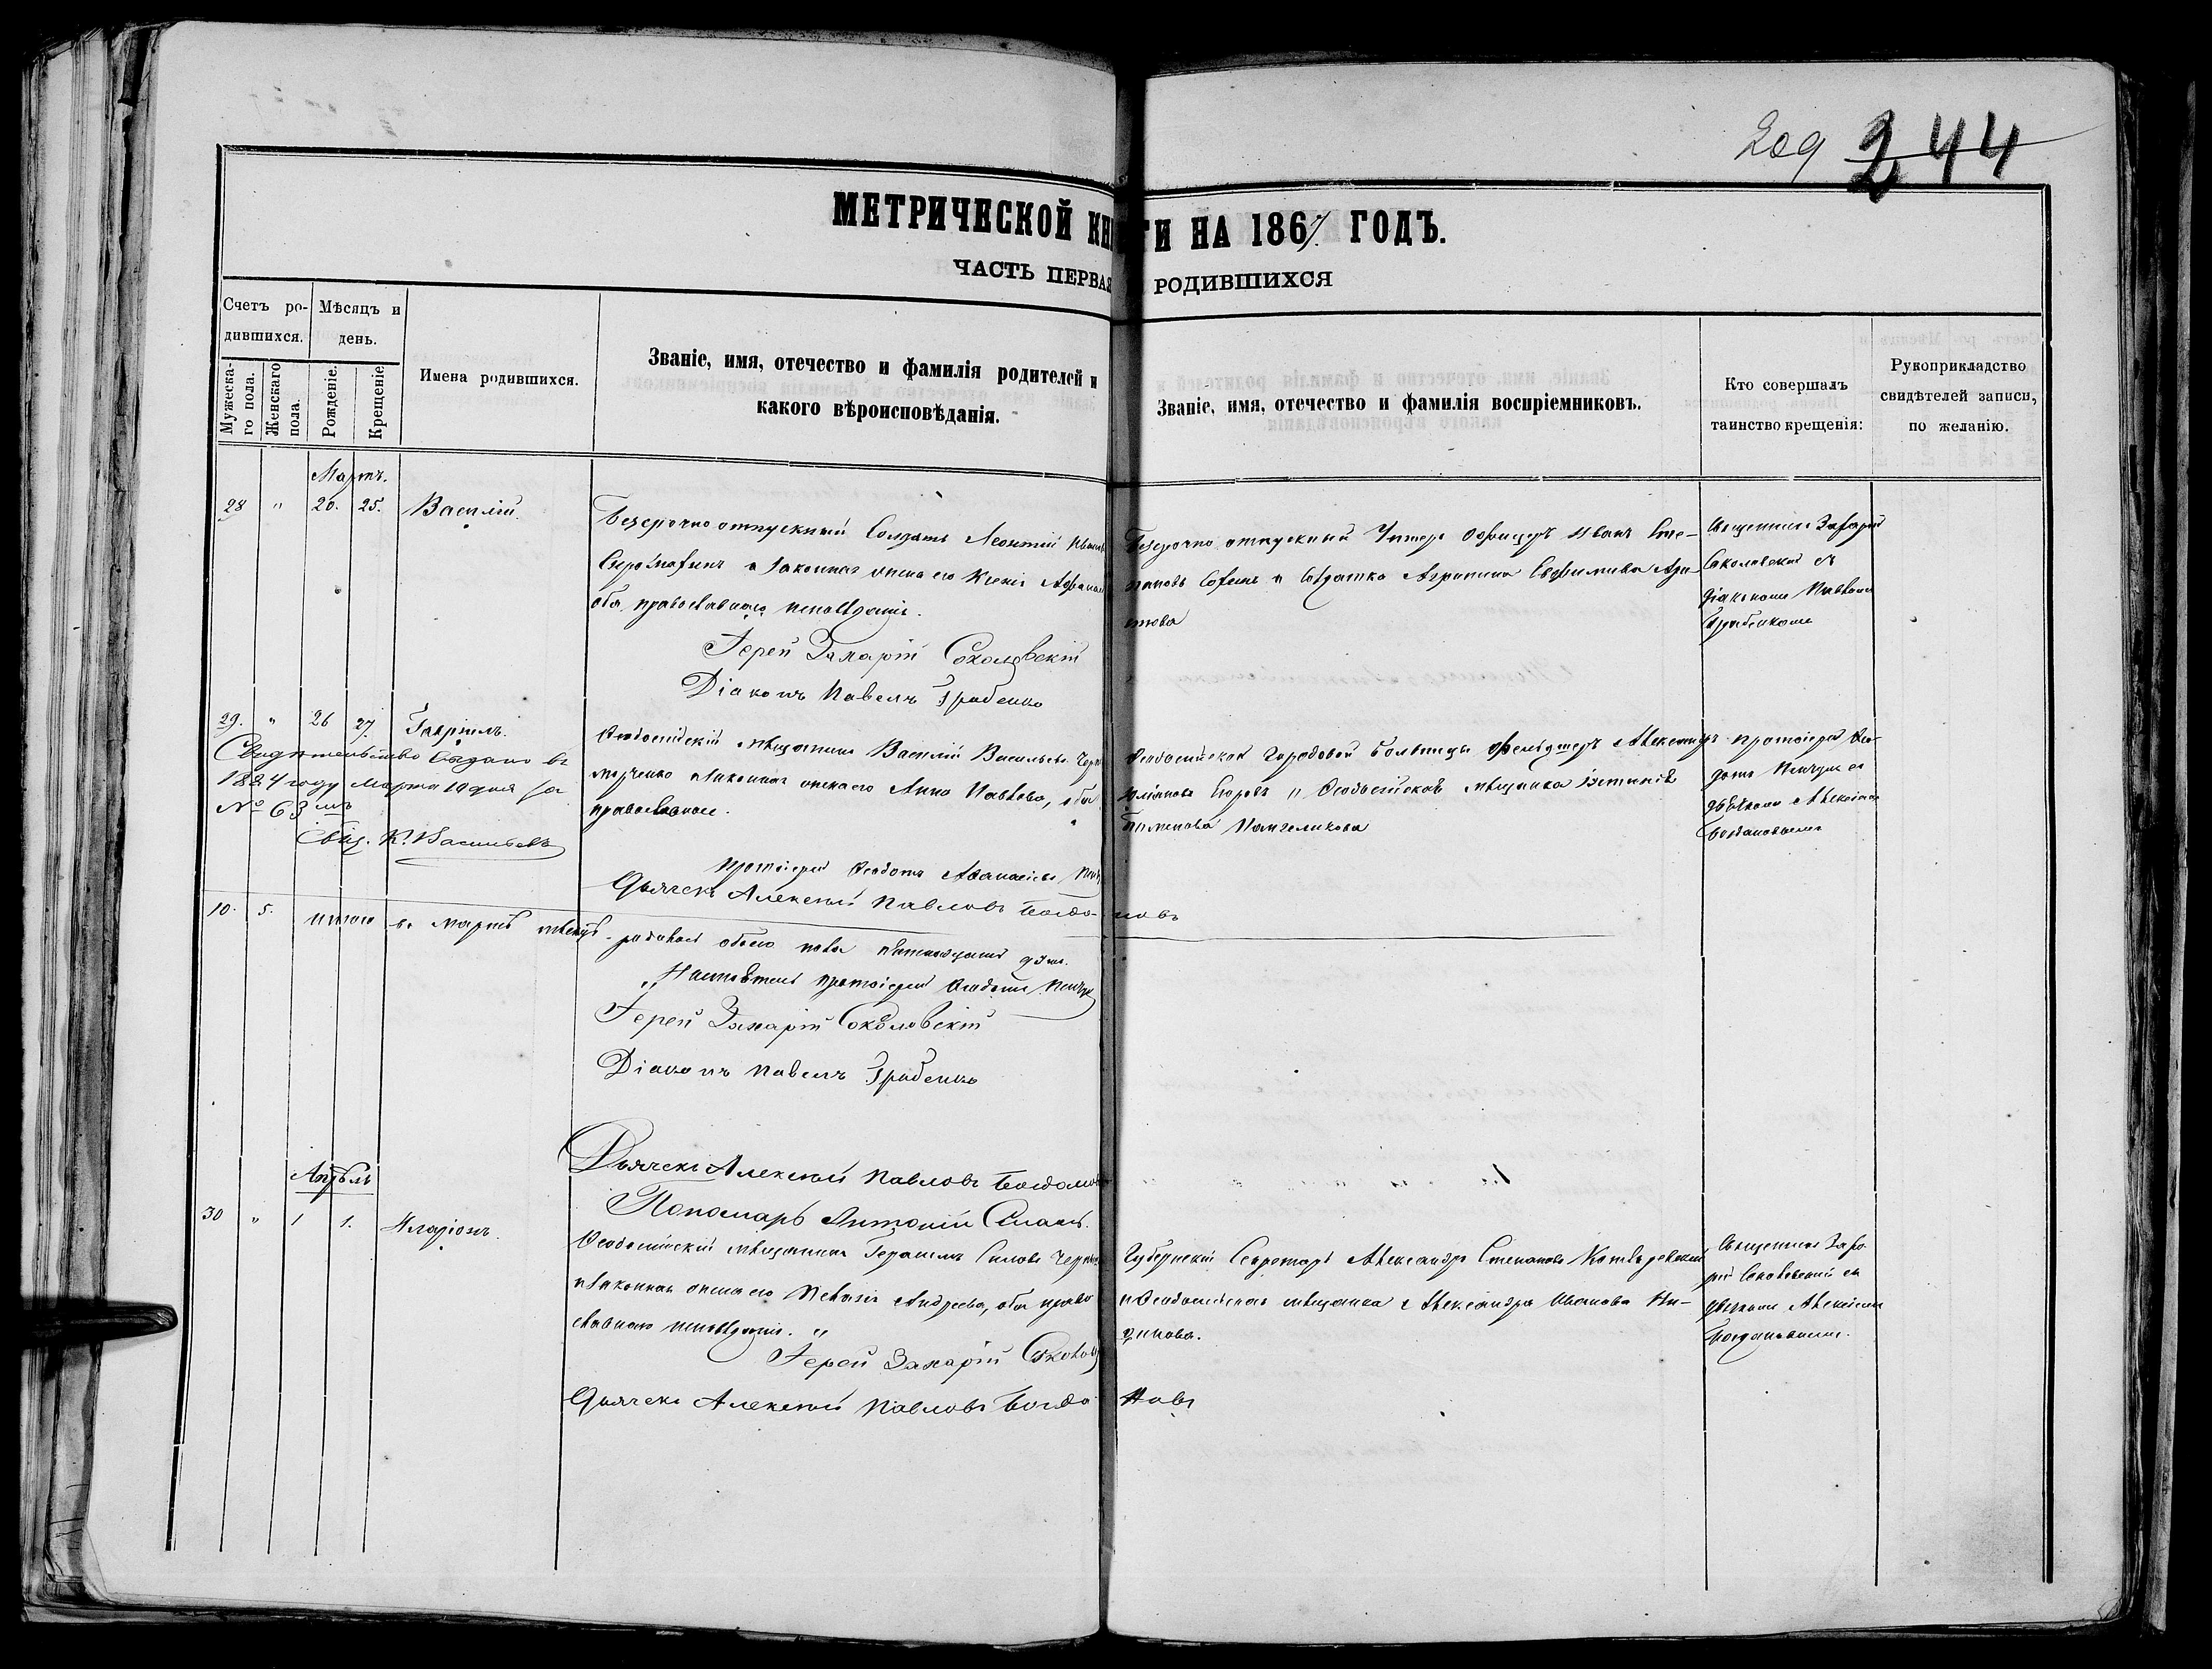 209 244
МЕТРИЧЕСКОЙ КНИГИ НА 1867 ГОДЪ.
ЧАСТЬ ПЕРВАЯ РОДИВШИХСЯ
Счетъ ро-
дившихся.
Мѣсяцъ и
день.
Мужеска-
го пола.
Женскаго
пола.
Рожденіе.
Крещеніе
Имена родившихся.
Званіе, имя, отечество и фамилія родителей и
какого вѣроисповѣданія.
Званіе, имя, отечество и фамилія воспріемниковъ.
Кто совершалъ
таинство крещенія:
Рукоприкладство
свидѣтелей записи,
по желанію.
Мартъ.
28 " 20. 25. Василій.
Безсрочно отпускный Солдатъ Леонтій
и законная жена его Ксенія
оба православнаго исповѣданія.
Іерей Захарій Соколовскій
Діаконъ Павелъ Грабенко
Безсрочно отпускный Унтеръ Офицеръ Иванъ Сте-
пановъ и Солдатка Агрипина Евфимива
Священникъ Захарій
Соколовскій съ
діакономъ Павломъ
Грабенкомъ
29. " 26 27. Гавріилъ.
Свидѣтельство выдано въ
1884 году Марта 19 дня за
№ 63 мъ
Свящ. К. Васильевъ
Ѳеодосійскій мѣщанинъ Василій Васильевъ
и законная жена его Анна Павлова, оба
православные.
Протоіерей Ѳеодотъ Аѳанасьевъ
Дьячекъ Алексѣй Павловъ Богдановъ
Ѳеодосійской Городовой больницы Фельдшеръ Александръ
и Ѳеодосійская мѣщанка
Протоіерей Ѳео-
дотъ съ
дьячкомъ Алексѣемъ
Богдановымъ
10. 5. Итого въ мартѣ мѣсяцѣ родилось обоего пола пятнадцать душъ.
Настоятель протоіерей Ѳеодотъ
Іерей Захарій Соколовскій
Діаконъ Павелъ Грабенко
Дьячекъ Алексѣй Павловъ Богдановъ
Пономарь Антоній
Апрѣль
30 " 1 1. Иларіонъ.
Ѳеодосійскій мѣщанинъ Герасимъ
и законная жена его Пелагія Андреева, оба право
славнаго исповѣданія. "
Іерей Захарій Соколов
Дьячекъ Алексѣй Павловъ Богдановъ
Губернскій Секретарь Александръ Степановъ
и Ѳеодосійская мѣщанка Александра Иванова
Священникъ Заха-
рій Соколовскій съ
дьячкомъ Алексѣемъ
Богдановымъ.